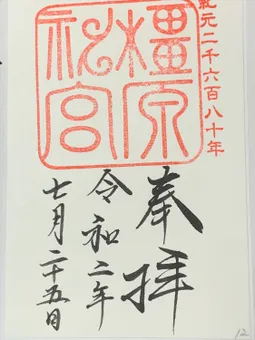 紀元二千六百八十年
橿原
神宮
奉拝
令和二年
七月二十五日
12